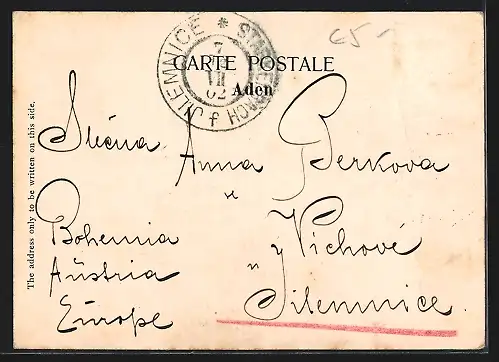 c5-
JILEMNICE * STARKENBACH
7
VII
02
CARTE POSTALE
Aden
The address only to be written on this side.
Slečna Anna Berkova
Bohemia
Austria
Europe
y Vichové
n
Jilemnice.